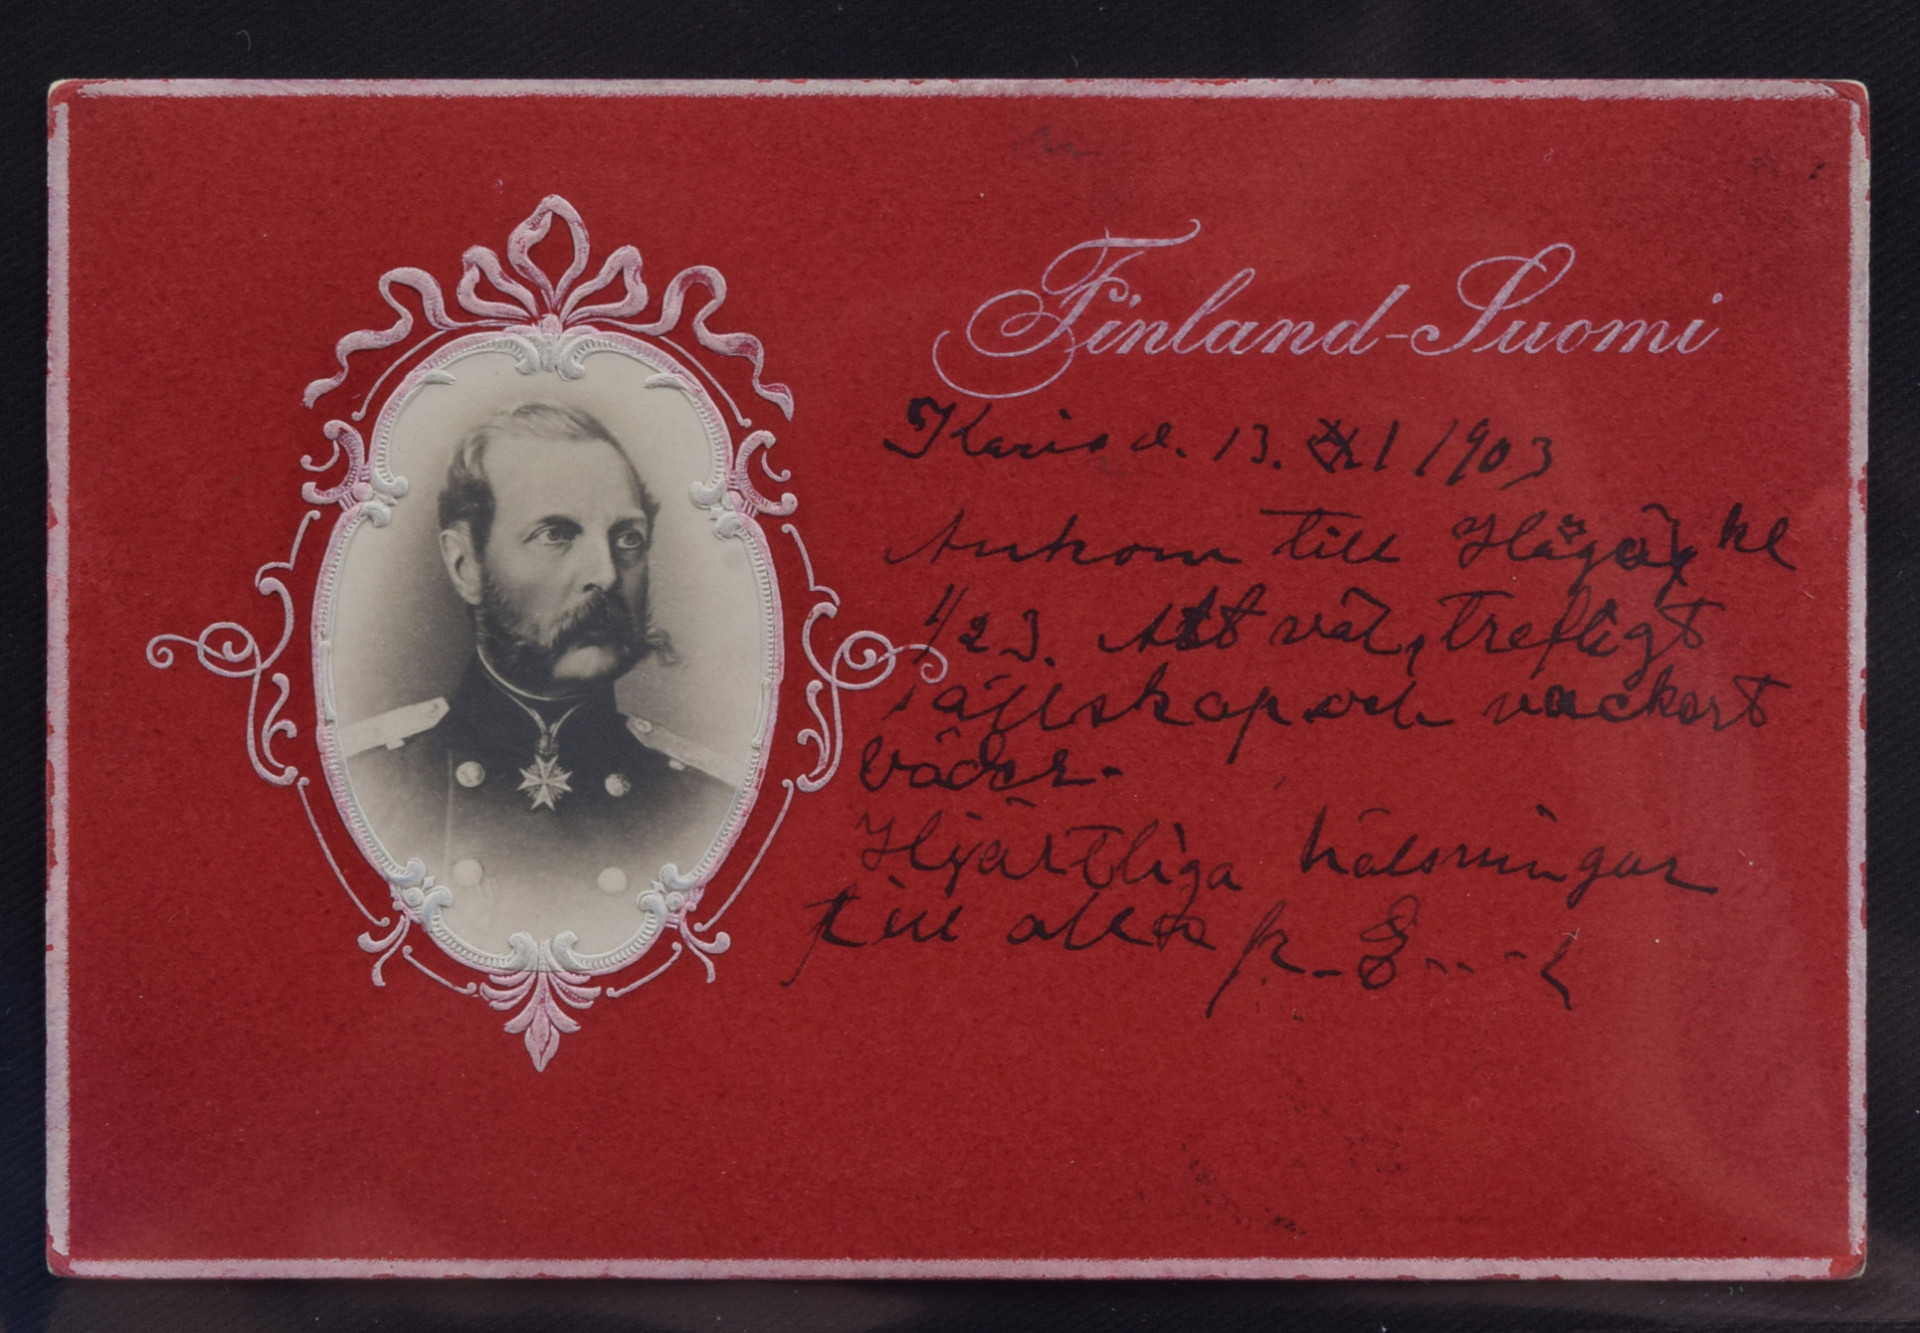 Finland-Suomi
Karis d. 13. XI 1903
Ankom till kl
1/2 3. Allt väl, trefligt
sällskap och vackert
väder.
Hjärtliga hälsningar
till alla fr.